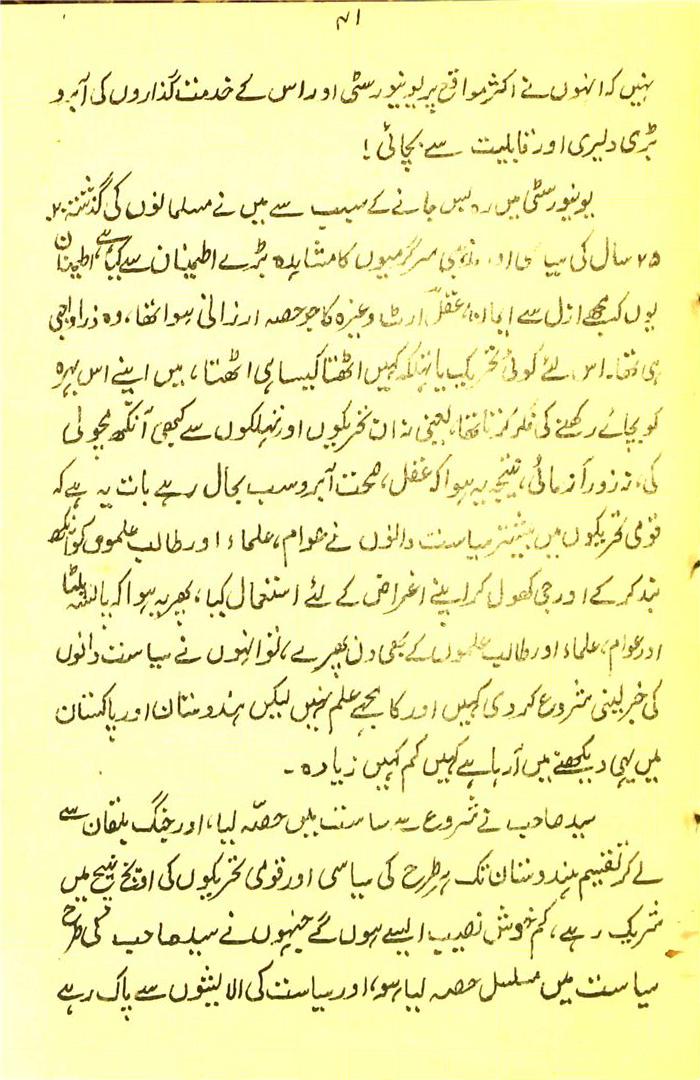 ۴۱
نہیں کہ انہوں نے اکثر مواقع پر یونیورسٹی اور اس کے خدمت گذاروں کی آبرو
بڑی دلیری اور قابلیت سے بچائی!
یونیورسٹی میں رہ بس جانے کے سبب سے میں نے مسلمانوں کی گذشتہ ۲۰،
۲۵ سال کی سیاسی اور مذہبی سرگرمیوں کا مشاہدہ بڑے اطمینان سے کیا ہے، اطمینان
یوں کہ مجھے ازل سے ایمان، عقل، آرٹ وغیرہ کا جو حصہ ارزانی ہوا تھا، وہ ذرا واجبی
ہی تھا۔ اس لئے کوئی تحریک یا تہلکہ کہیں اٹھتا کیسا ہی اٹھتا، میں اپنے اس بہرہ
کو بچائے رکھنے کی فکر کرتا تھا، یعنی نہ ان تحریکوں اور تہلکوں سے کبھی آنکھ مچولی
کی، نہ زور آزمائی، نتیجہ یہ ہوا کہ عقل، صحت آبرو سب بحال رہے بات یہ ہے کہ
قومی تحریکوں میں بیشتر سیاست دانوں نے عوام، علماء اور طالب علموں کو آنکھ
بند کر کے اور جی کھول کر اپنے اغراض کے لئے استعمال کیا، پھر یہ ہوا کہ پانسہ پلٹا
اور عوام، علماء اور طالب علموں کے بھی دن پھرے، تو انہوں نے سیاست دانوں
کی خبر لینی شروع کر دی کہیں اور کا مجھے علم نہیں لیکن ہندوستان اور پاکستان
میں یہی دیکھنے میں آ رہا ہے کہیں کم کہیں زیادہ۔
سید صاحب نے شروع سے سیاست میں حصّہ لیا، اور جنگ بلقان سے
لے کر تقسیم ہندوستان تک ہر طرح کی سیاسی اور قومی تحریکوں کی اونچ نیچ میں
شریک رہے، کم خوش نصیب ایسے ہوں گے جنہوں نے سید صاحب کی طرح
سیاست میں مسلسل حصہ لیا ہو، اور سیاست کی الائشوں سے پاک رہے